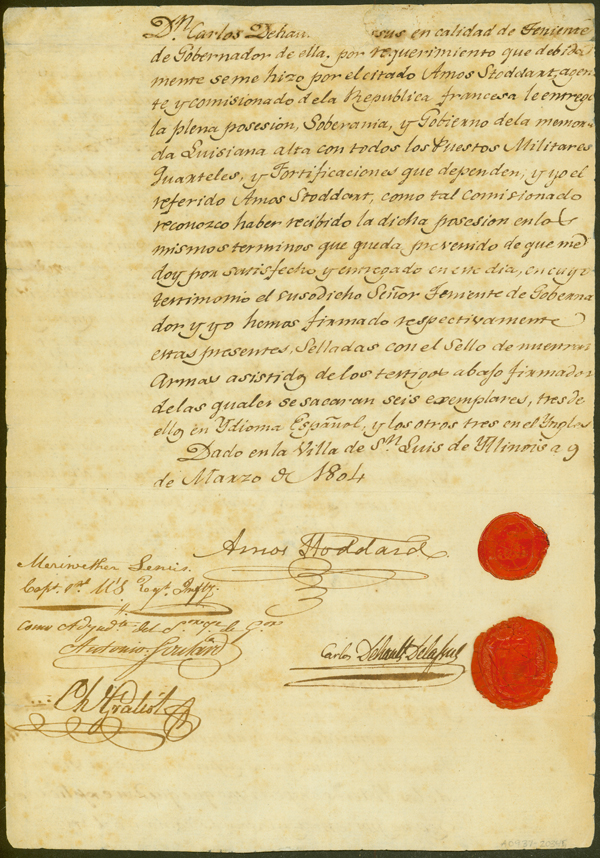 Dn. Carlos Dehau sus en calidad de Teniente
de Gobernador de ella, por requerimiento que debida
mente se me hizo por el citado Amos Stoddart, agen
te y comisionado dela Republica francesa le entrego
la plena posesion, Soberania, y Gobierno dela memora
da Luisiana alta con todos los Puestos Militares
Quarteles, y Fortificaciones que dependen, y yo el
referido Amos Stoddart, como tal Comisionado
reconozco haber recibido la dicha posesion en los
mismos terminos que queda prevenido de que me
doy por satisfecho y entregado en este dia, en cuyo
testimonio el susodicho Señor Teniente de Goberna
dor y yo hemos firmado respectivamente
estas presentes, Selladas con el Sello de nuestras
Armas asistidos de los testigos abajo firmados
delas quales se sacaran seis exemplares, tres de
ellos en Ydioma Español, y los otros tres en el Yngles
Dado en la Villa de Sn. Luis de Yllinois a 9
de Marzo de 1804
Amos Stoddard.
Meriwether Lewis.
Capt. 1st. U'S. Regt. Infty.
Como Ayudte. del
Antonio Soulard
Carlos Dehault Delassus
Ch Gratiot